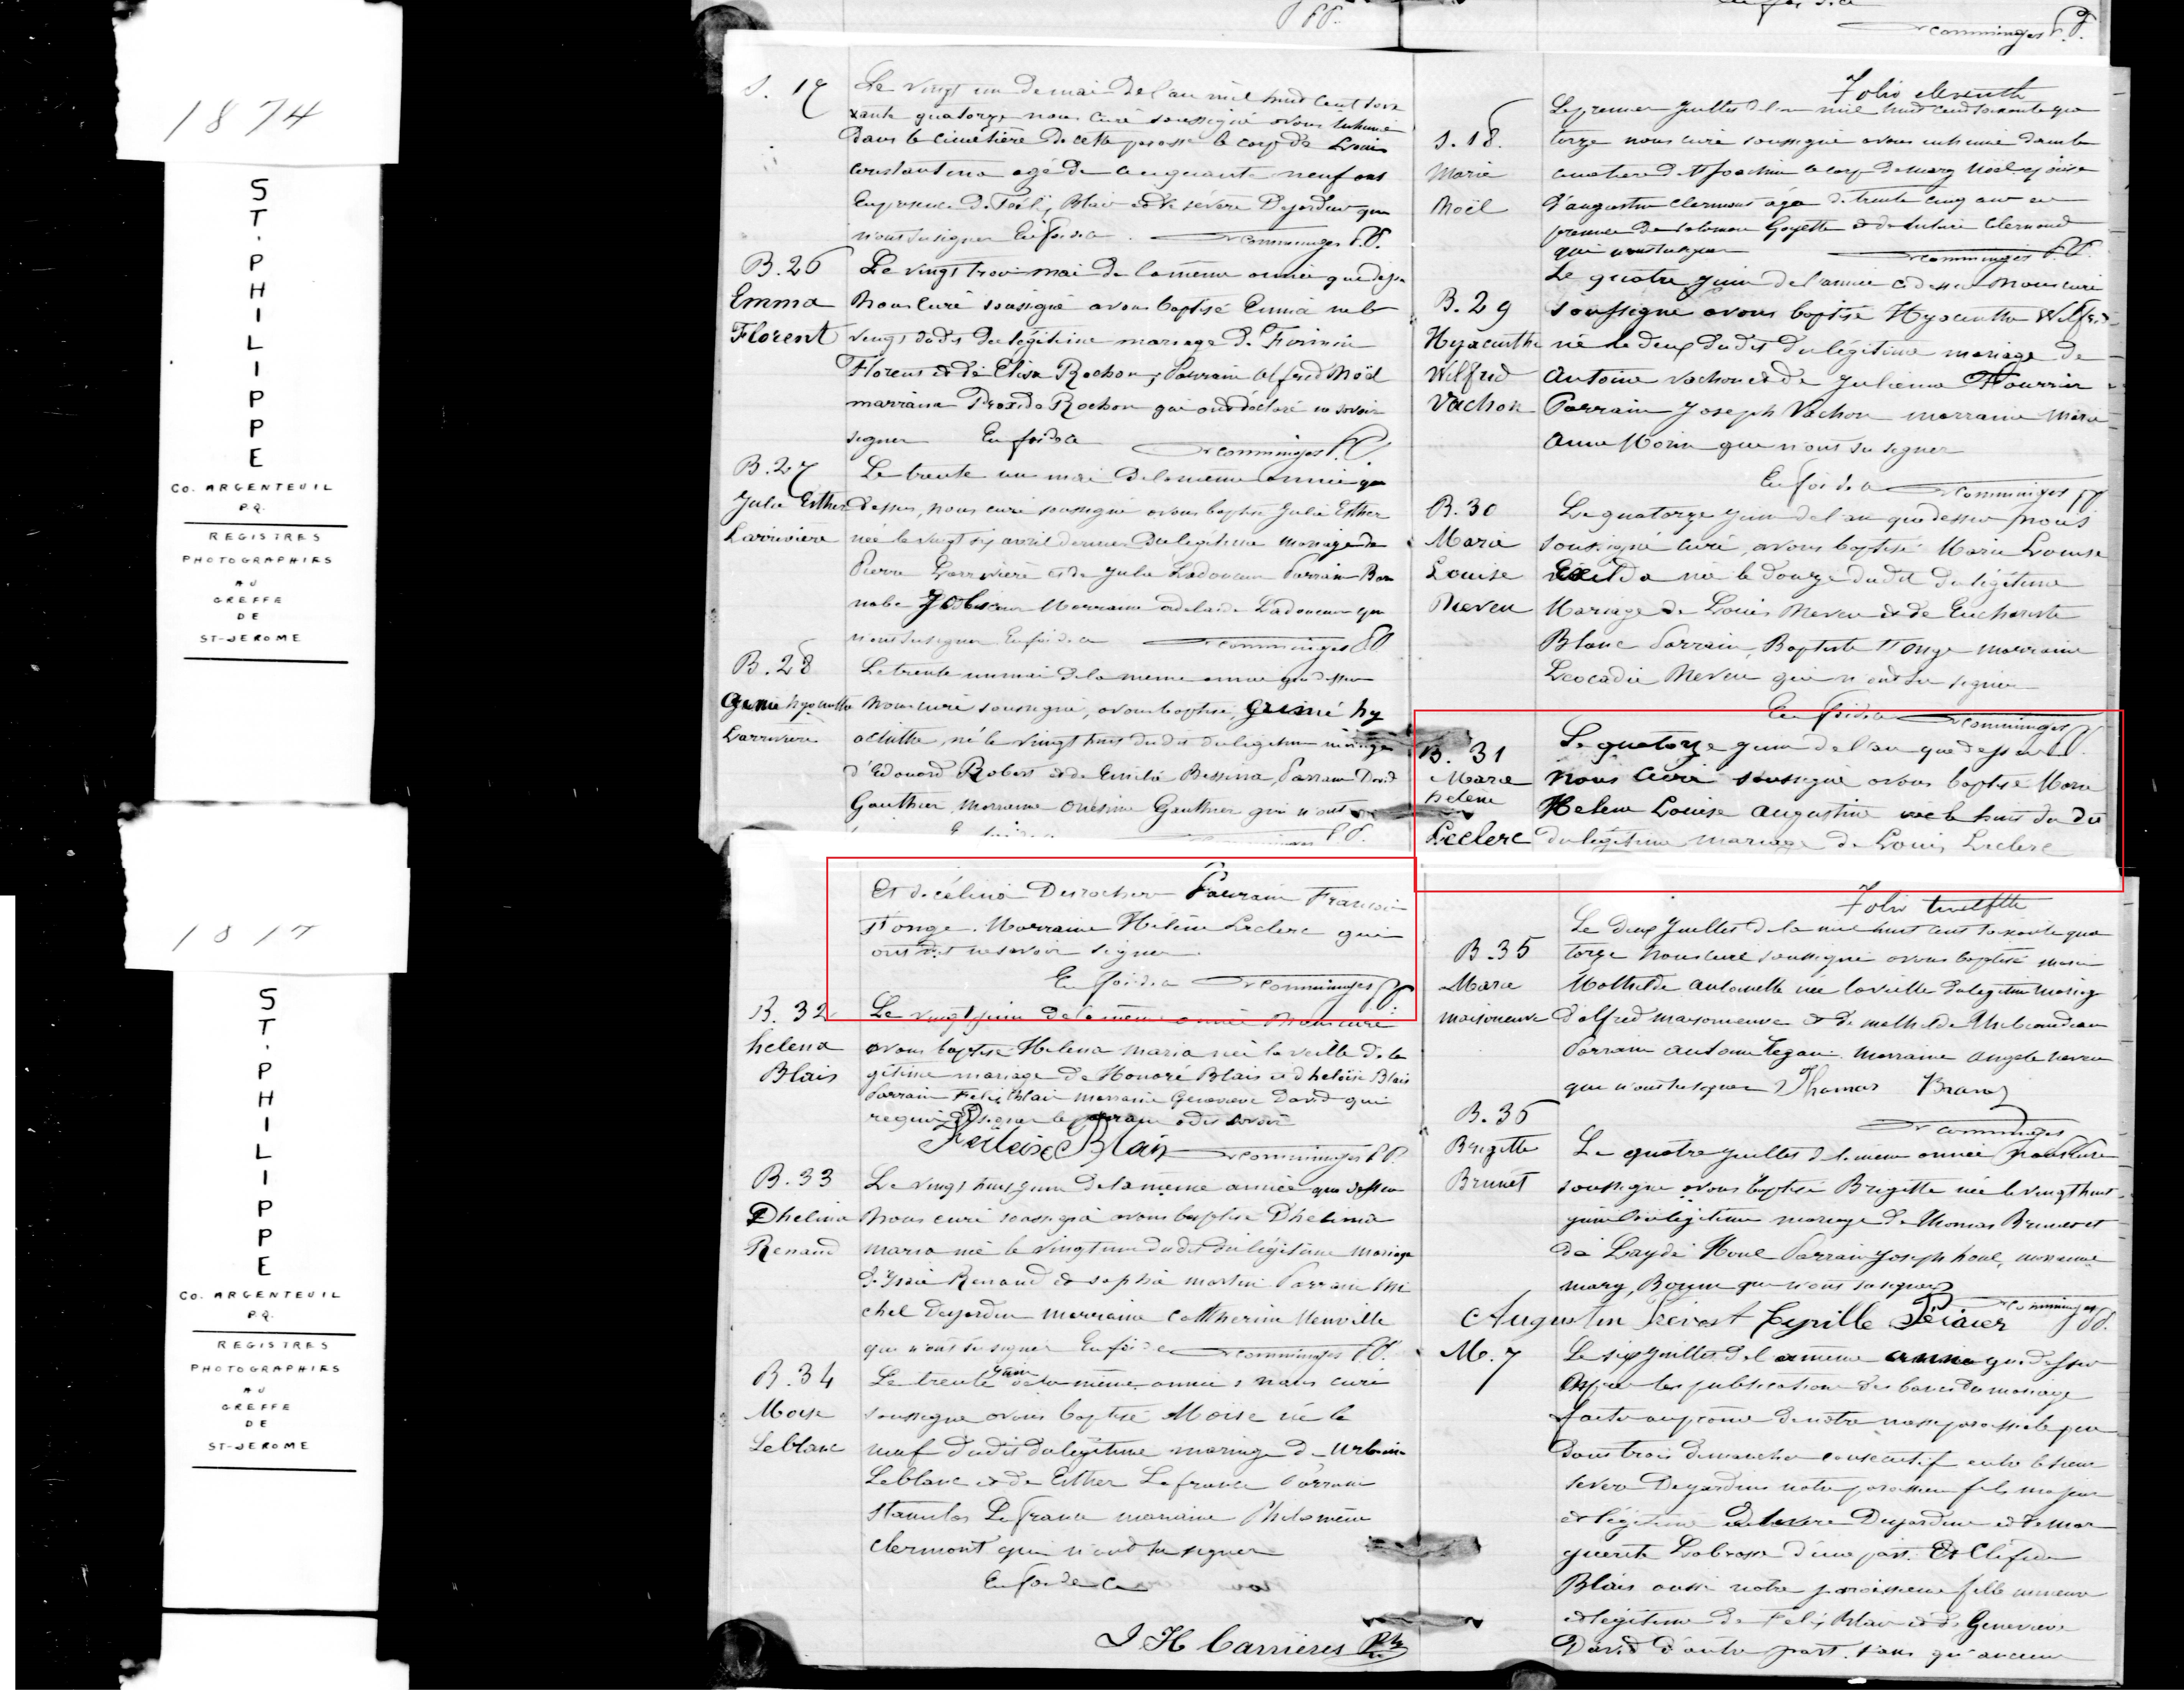 1874
ST. PHILIPPE
CO. ARGENTEUIL
P.Q.
REGISTRES
PHOTOGRAPHIES
AU
GREFFE
DE
ST-JEROME
S. 17
Le vingt un de mai de l'an mil huit cent soix
ante quatorze nous curé soussigné avons inhumé
dans le cimetière de cette paroisse le corp de Louis
Constantino agé de cinquante neuf ans
En presence de Felix Blais et de sévère Dejardin qui
n'ont su signer En foi de ce comminges P.P.
B. 26
Emma
Florent
Le vingt trois mai de la même année que dessu
Nous curé soussigné avons baptisé Emma née le
vingt dudit du légitime mariage de Firmin
Florent et de Elisa Rochon, Parrain Alfred Noël
marraine Praxède Rochon qui ont déclaré ne savoir
signer En foi de ce comminges P.P.
B. 27
Julie Esther
Larrivière
Le trente un mai de la même année que
dessus, nous curé soussigné avons baptisé Julie Esther
née le vingt six avril dernier du légitime mariage de
Pierre Larrivière et de Julie Ladouceur Parrain Bar
nabe Marraine adelaide Ladouceur qui
n'ont su signer En foi de ce comminges P.P.
B. 28
hyacinthe
Larrivière
Le trente un mai de la même année que dessu
Nous curé soussigné, avons baptisé, hy
acinthe, né le vingt huit dudit du légitime mariage
d'Edouard Robert et de Emilie Bessina, Parrain David
Gauthier, Marraine Onésime Gauthier qui n'ont
P.P.
Folio eleventh
S. 18.
Marie
Noël
Le premier Juillet de l'an mil huit cent soixante qua
torze nous curé soussigné avons inhumé dans le
cimetiere de St Joachim le corp de mary Noël épouse
d'augustin Clermont agée de trente cinq ans en
presence de Solomon Goyette et de Clermond
qui n'ont su signer comminges P.P.
B. 29
Hyacinthe
Wilfred
Vachon
Le quatre Juin de l'année ci dessu Nous curé
soussigné avons baptisé Hyacinthe Wilfred
né le deux dudit du légitime mariage de
Antoine Vachon et de Julienne Fournier
Parrain Joseph Vachon marraine Marie
Anne Morin que n'ont su signer
En foi de ce comminges PP
B. 30
Marie
Louise
Neveu
Le quatorze Juin de l'an que dessu nous
soussigné curé, avons baptisé Marie Louise
Exilda née le douze dudit du légitime
Mariage de Louis Neveu et de Euchariste
Blanc Parrain, Baptiste St Onge marraine
Léocadie Neveu qui n'ont su signer
En foi de ce comminges P.P.
B. 31
Marie
helene
Leclerc
Le quatorze Juin de l'an que dessu
Nous curé soussigné avons baptisé Marie
Helene Louise Augustine née le huit du dit
du légitime mariage de Louis Leclerc
ST. PHILIPPE
CO. ARGENTEUIL
P.Q.
REGISTRES
PHOTOGRAPHIES
AU
GREFFE
DE
ST-JEROME
Et de célina Desrocher Parrain Francois
St onge. Marraine Hélène Leclerc qui
ont dit ne savoir signer.
En foi de ce comminges PP.
B. 32
helena
Blais
Le vingt juin de la même année Nous curé
avons baptisé Helena maria née la veille du lé
gitime mariage de Honoré Blais et d'heloise Blais
Parrain Felix Blais Marraine Genevieve David qui
requis de signer le parrain a dit savoir
Blais comminges P.P.
B. 33
Dhelima
Renaud
Le vingt huit juin de la même année que dessu
Nous curé soussigné avons baptisé Dhelima
maria née le vingt une dudit du légitime mariage
d'Isaie Renaud et sophie martin Parrain Mi
chel Dejardin marraine Catherine Menville
qui n'ont su signer En foi de ce comminges P.P.
B. 34
Moise
Leblanc
Le trente juin de la même année nous curé
soussigné avons baptisé Moise né le
neuf dudit du légitime mariage de Urbain
Leblanc et de Esther Lafrance Parrain
Stanislas Lafrance marraine Philomène
Clermont qui n'ont su signer
En foi de ce
J H Carrières Ptre
Folio twelfth
B. 35
Marie
maisoneuve
Le deux Juillet de la mil huit cent soixante qua
torze Nous curé soussigné avons baptisé marie
Mathilde Antoinette née la veille du légitime mariage
d'alfred maisonneuve et de mathilde Thibeaudeau
Parrain antoine Legau marraine angele neveu
qui n'ont su signer Thomas
comminges
B. 36
Brigitte
Brunet
Le quatre Juillet de la même année nous curé
soussigné avons baptisé Brigitte née le vingt huit
juin du légitime mariage de Thomas Brunet et
de Houle Parrain Joseph houle, marraine
mary, qui n'ont su signer
comminges PP.
Augustin Cyrille
M. 7
Le six Juillet de la même année que dessu
Après les publications des bans de mariage
faite au prône de notre messe paroissiale pen
dant trois dimanches consecutif entre le sieur
severe Dejardins notre paroissien fils majeur
et légitime de severe Dujardin et de mar
guerite Labrosse d'une part. Et
Blais aussi notre paroissienne fille mineure
et légitime de Felix Blais et de Genevieve
David d'autre part. sans qu'aucun